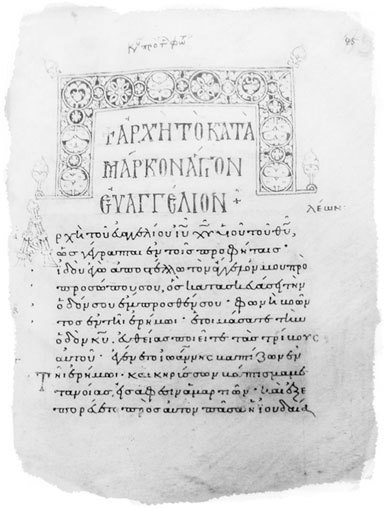 ΑΡΧΗ ΤΟ ΚΑΤΑ
ΜΑΡΚΟΝ ΑΓΙΟΝ
ΕΥΑΓΓΕΛΙΟΝ +
λέων
ρχὴ τοῦ ευαγγελίου ιυ χυ υιοῦ του θυ,
ὡς γέγραπται ἐν τοῖς προφήταις ·
ἰδοὺ ἐγὼ ἀποστέλλω τὸν ἄγγελόν μου πρὸ
προσώπου σου, ὃς κατασκευάσει τὴν
ὁδόν σου ἔμπροσθέν σου · φωνὴ βοῶν
τος ἐν τῇ ἐρήμῳ · ἑτοιμάσατε τὴν
ὁδὸν κυ. εὐθείας ποιεῖτε τὰς τρίβους
αὐτοῦ · ἐγένετο ἰωάννης βαπτίζων ἐν
τῇ ἐρήμῳ · καὶ κηρύσσων βάπτισμα με
τανοίας, εἰς ἄφεσιν ἁμαρτιῶν · καὶ ἐξε
πορεύετο πρὸς αὐτὸν πᾶσα ἡ ἰουδαία